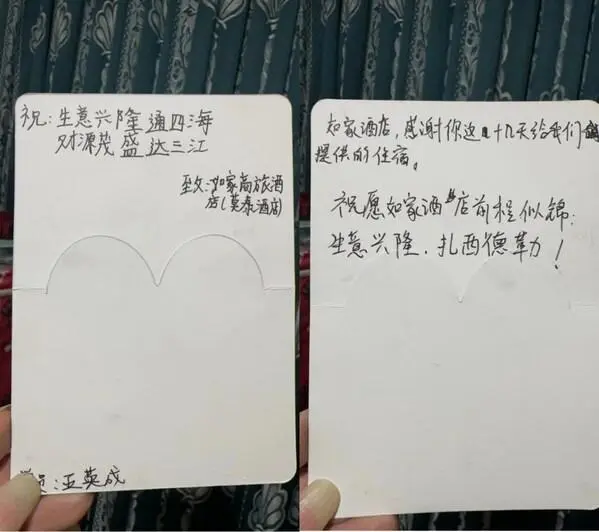 祝:生意兴隆通四海
财源茂盛达三江
至文:如家商旅酒
店(莫泰酒店)
学员:亚英成
如家酒店,感谢你这十几天给我们
提供的住宿。
祝愿如家酒店前程似锦:
生意兴隆.扎西德勒!